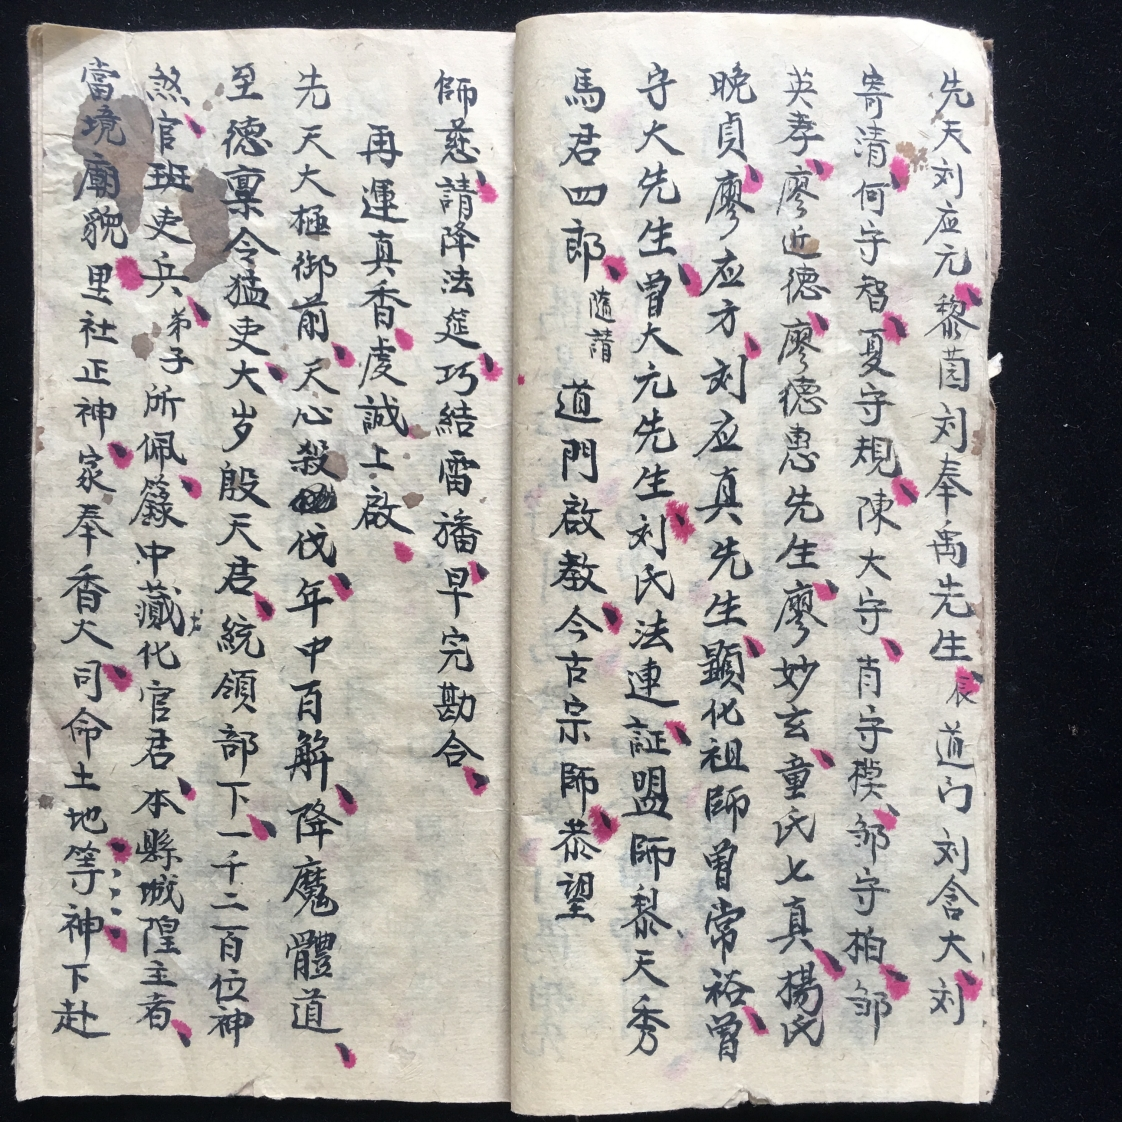 先天刘应元黎茵刘奉禹先生辰道门刘含大刘
寄清何守智夏守規陳大守肖守模邹守柏邹
英孝廖近德廖德惠先生廖妙玄童氏七真楊氏
晚貞廖应方刘应真先生顯化祖師曾常裕曾
守大先生曾大元先生刘氏法連証盟師黎天秀
馬君四郎隨請道門啟教今古宗師恭望
師慈請降法筵巧結雷旛早完勘合
再運真香虔誠上啟
先天大極御前天心殺伐年中百解降魔體道
至德稟令猛吏大岁殷天君統領部下一千二百位神
煞官班吏兵弟子所佩籙中藏化官君本縣城隍主者
當境廟貌里社正神家奉香火司命土地等神下赴